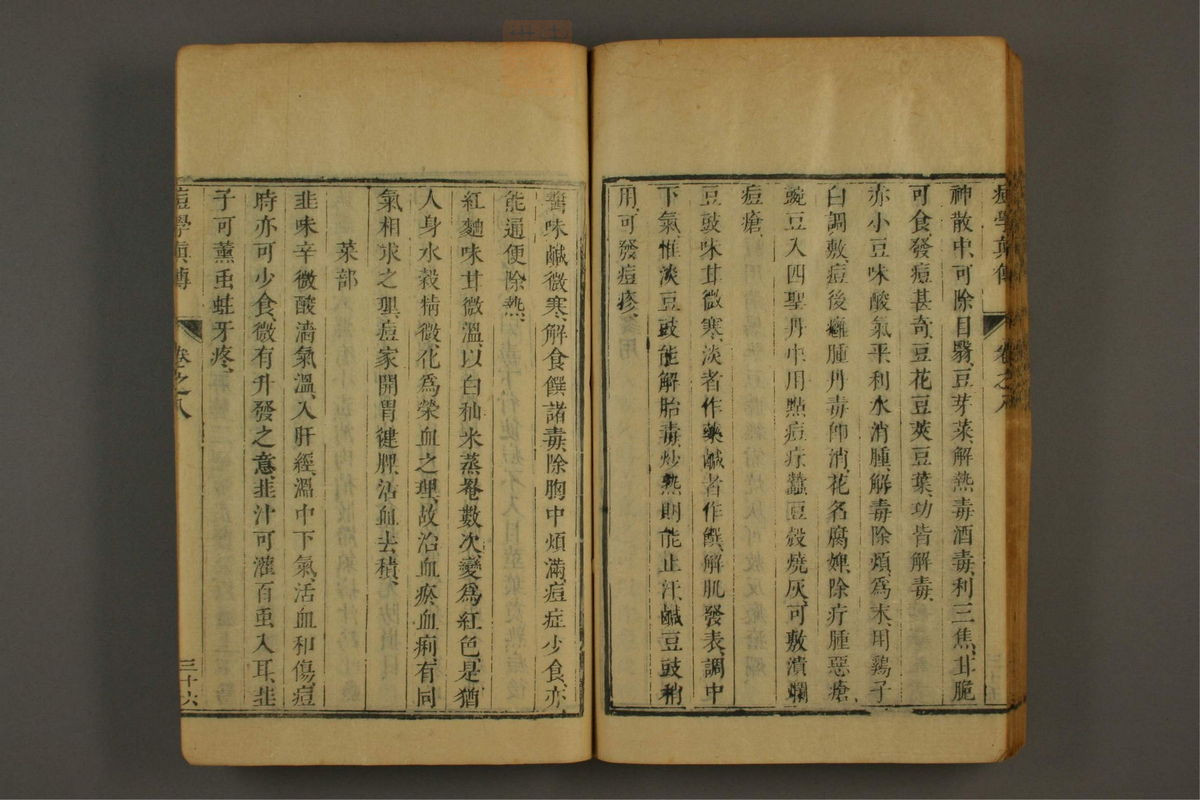 痘學真傳 卷之八
神散中可除目翳豆芽菜解熱毒酒毒利三焦甘脆
可食發痘甚奇豆花豆莢豆葉功皆解毒
赤小豆味酸氣平利水消腫解毒除煩爲末用鷄子
白調敷痘後癰腫丹毒卽消花名腐婢除疔腫惡瘡
豌豆入四聖丹中用點痘疔蠶豆殼燒灰可敷潰爛
痘瘡
豆豉味甘微寒淡者作藥鹹者作饌解肌發表調中
下氣惟淡豆豉能解胎毒炒熱則能止汗鹹豆豉稍
用可發痘疹
醬味鹹微寒解食饌諸毒除胸中煩滿痘症少食亦
能通便除熱
紅麵味甘微溫以白秈米蒸罨數次變爲紅色是猶
人身水穀精微化爲榮血之理故治血瘀血痢有同
氣相求之理痘家開胃健脾活血去積
菜部
韭味辛微酸濇氣溫入肝經溫中下氣活血和傷痘
時亦可少食微有升發之意韭汁可灌百蟲入耳韭
子可薰䖝蛀牙疼
痘學眞傳 卷之八 三十六